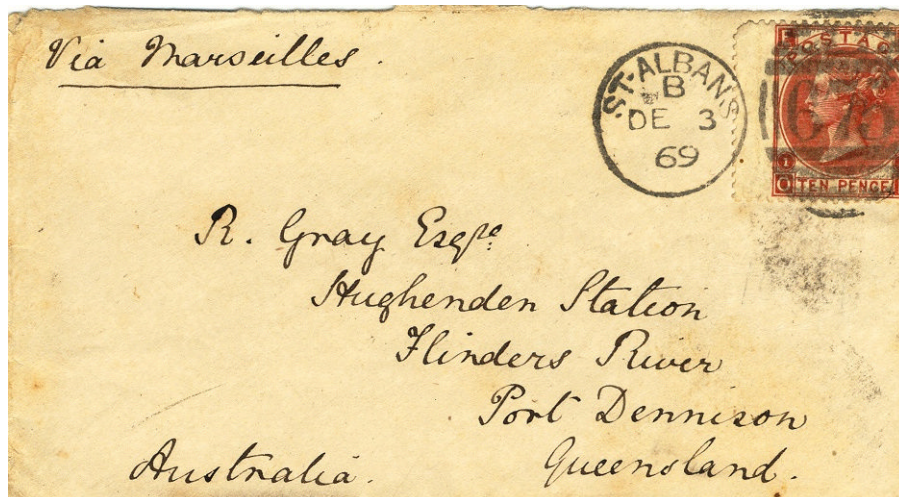 Via Marseilles.
ST. ALBANS
B
DE 3
69
POSTAG
TEN PENCE
R. Gray Esqre
Hughenden Station
Flinders River
Port Dennison
Queensland.
Australia.